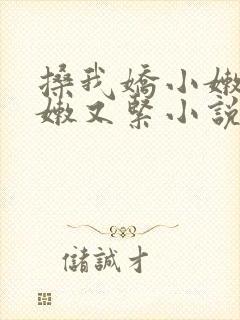 搡我嬌小嫩
嫩又緊小説
儲誠才